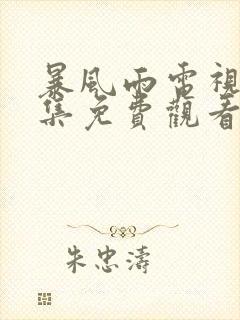 暴風雨電視
集免費觀看
朱忠濤